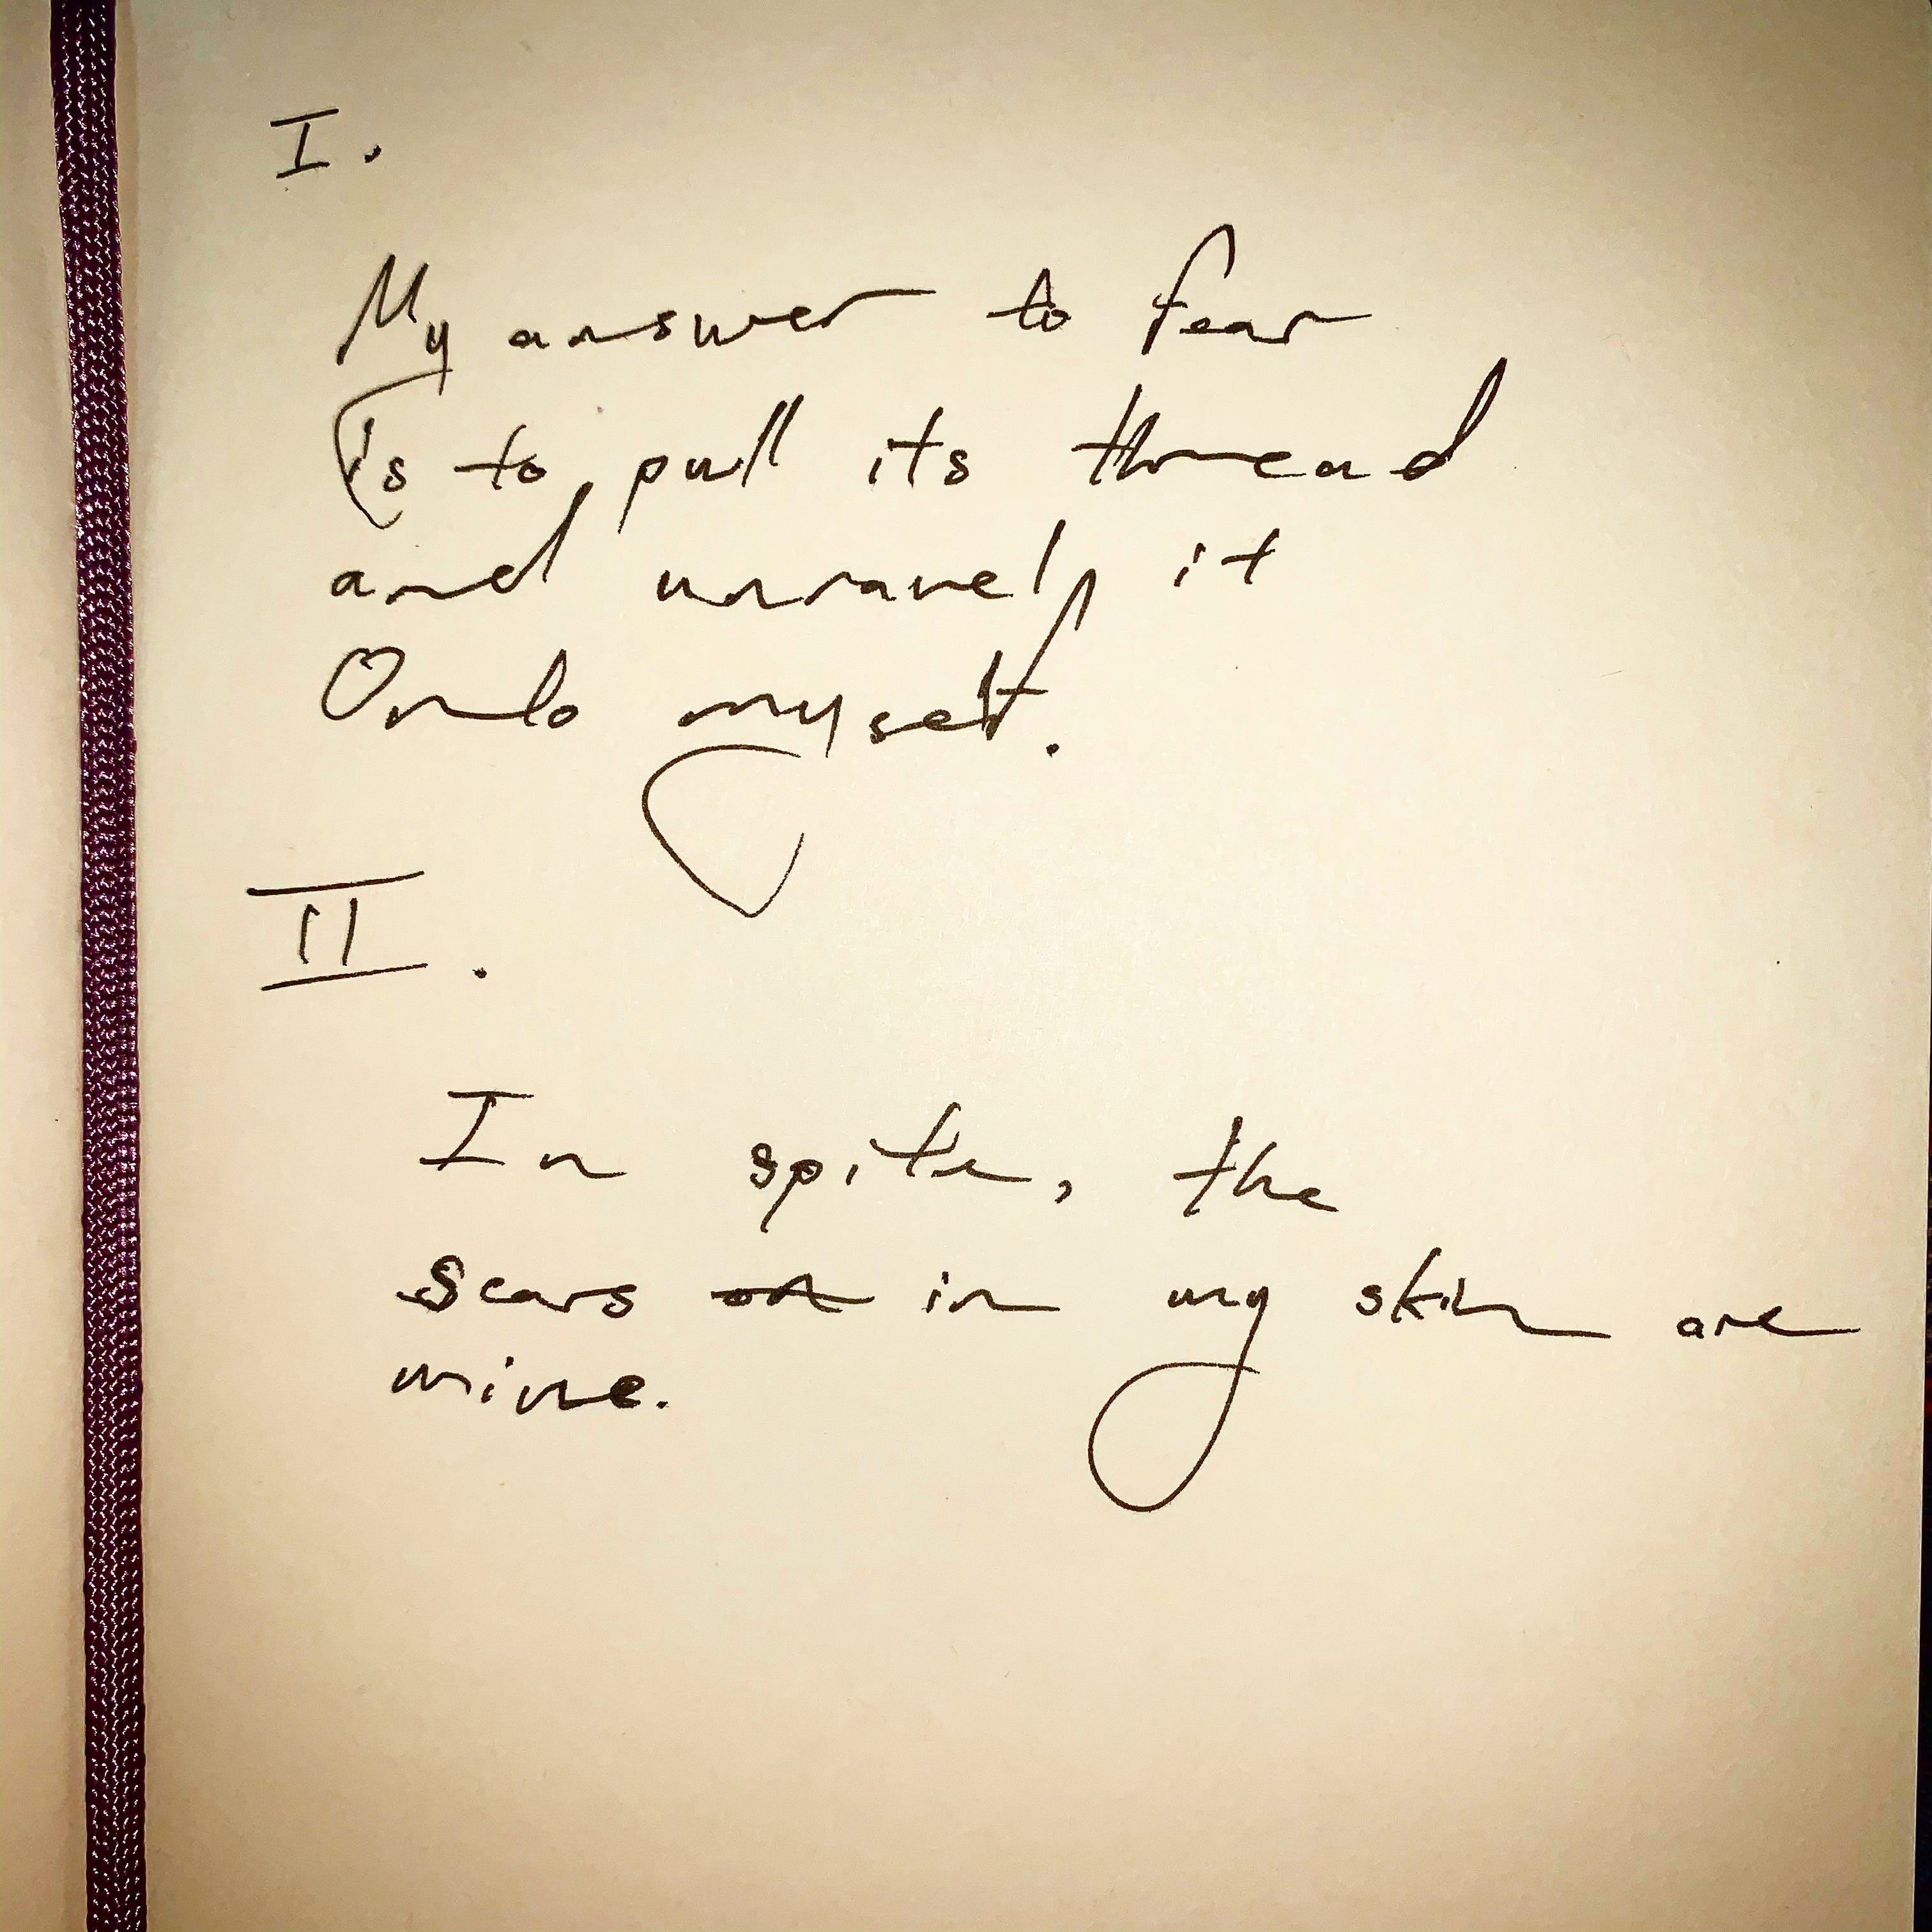 I.
My answer to fear
is to pull its thread
and unravel it
Onto myself.
II.
In spite, the
scars on in my skin are
mine.